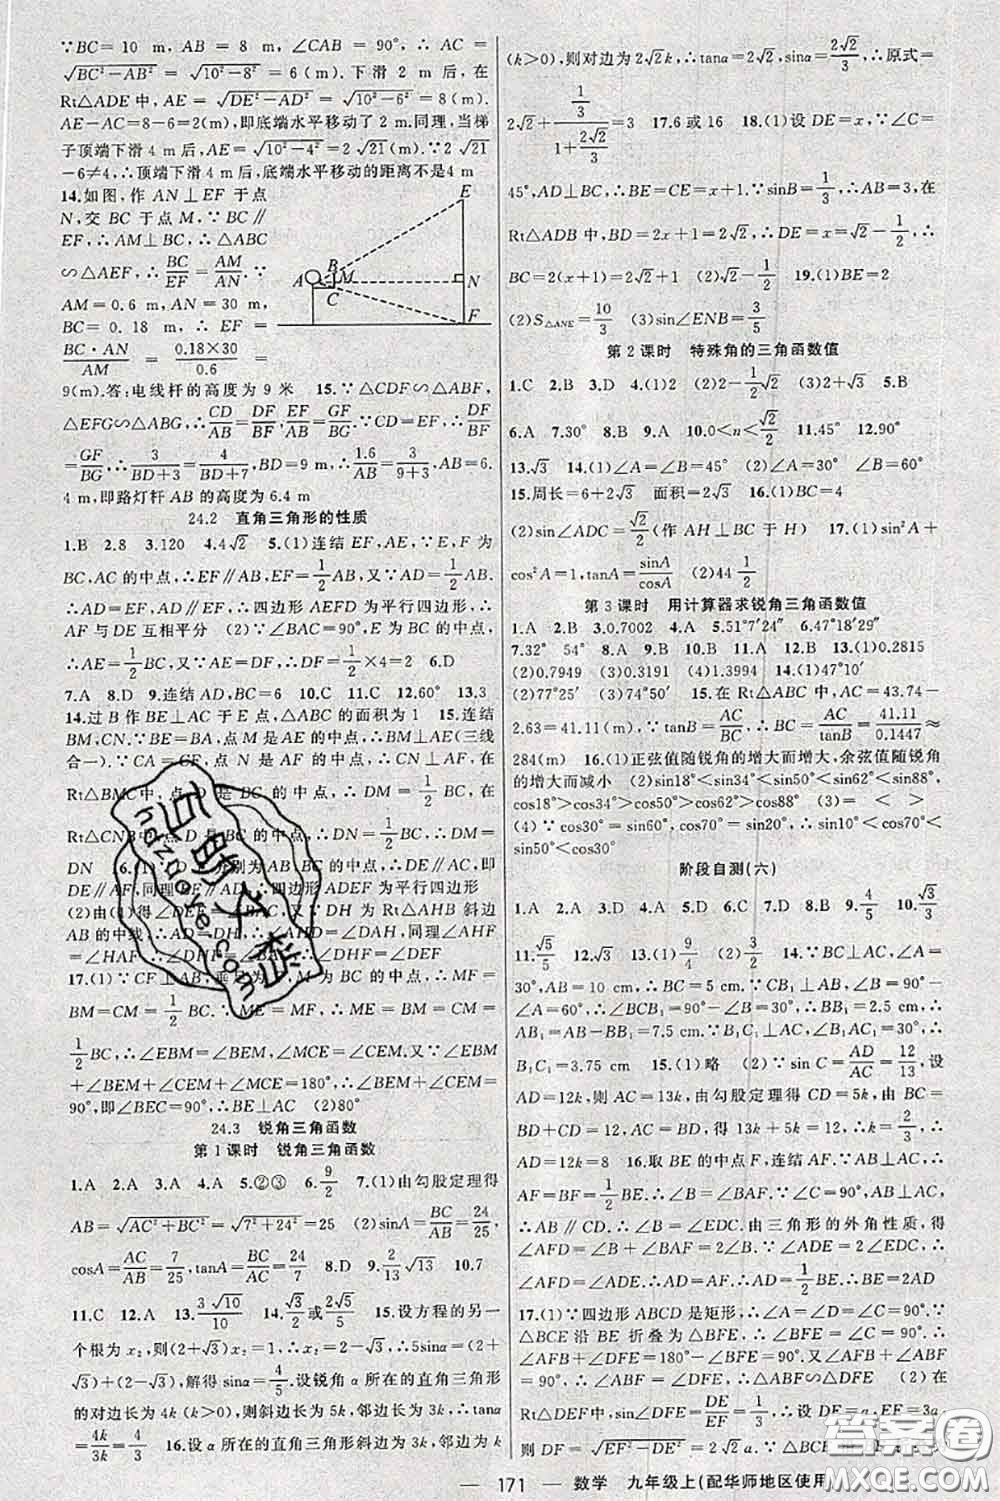 ∵BC= 10 m, AB = 8 m, ∠CAB = 90°, ∴ AC =
√(BC²−AB²) = √(10²−8²) = 6(m). 下滑 2 m 后, 在
Rt△ADE 中, AE = √(DE²−AD²) = √(10²−6²)=8(m).
AE−AC=8−6=2(m), 即底端水平移动了 2 m. 同理, 当梯
子顶端下滑 4 m 后, AE = √(10²−4²) = 2√21(m). ∵2√21
−6≠4, ∴顶端下滑 4 m 后, 底端水平移动的距离不是4 m
14.如图,作 AN⊥EF 于点
N,交 BC 于点 M,∵BC∥
EF,∴AM⊥BC,∴△ABC
∽△AEF,∴BC/EF=AM/AN. ∵
AM=0.6 m, AN=30 m,
BC= 0.18 m, ∴ EF =
BC·AN/AM = 0.18×30/0.6 =
E
A B M N
C
F
9(m).答:电线杆的高度为 9 米 15.∵△CDF∽△ABF,
△EFG∽△ABG,∴CD/AB=DF/BF,EF/AB=GF/BG.∵CD=EF,∴DF/BF
=GF/BG,∴3/(BD+3)=4/(BD+7),BD=9 m,∴1.6/AB=3/(9+3),AB=6.
4 m,即路灯杆 AB 的高度为 6.4 m
24.2 直角三角形的性质
1.B 2.8 3.120 4.4√2 5.(1)连结 EF,AE,∵E,F 为
BC,AC 的中点,∴EF∥AB,EF=1/2AB,又∵AD=1/2AB,
∴AD=EF,AD∥EF,∴四边形 AEFD 为平行四边形,∴
AF 与 DE 互相平分 (2)∵∠BAC=90°,E 为 BC 的中点,
∴AE=1/2BC,又∵AE=DF,∴DF=1/2×4=2 6.D
7.A 8.D 9.连结 AD,BC=6 10.C 11.C 12.60° 13.3
14.过 B 作 BE⊥AC 于 E 点,△ABC 的面积为 1 15.连结
BM,CN,∵BE=BA,点 M 是 AE 的中点,∴BM⊥AE(三线
合一).∵CA=CF,点 N 是 AF 的中点,∴CN⊥AF,在
Rt△BMC 中,点 D 是 BC 的中点,∴DM=1/2BC,在
Rt△CNB 中,点 D 是 BC 的中点,∴DN=1/2BC,∴DM=
DN 16.(1) 分别为 AB,BC 的中点,∴DE∥AC,即
DE∥AF,同理 ∴四边形 ADEF 为平行四边形
(2)由(1)得∠DEF=∠BAC,又∵DH 为 Rt△AHB 斜边
AB 的中线,∴AD=DH,∴∠DHA=∠DAH,同理∠AHF
=∠HAF,∴∠DHF=∠BAC,∴∠DHF=∠DEF
17.(1)∵CF⊥AB,垂足为 M 为 BC 的中点,∴MF=
BM=CM=1/2BC. ∵ME=MF,∴ME=BM=CM=
1/2BC,∴∠EBM=∠BEM,∠MCE=∠CEM.又∵∠EBM
+∠BEM+∠CEM+∠MCE=180°,∴∠BEM+∠CEM=
90°,即∠BEC=90°,∴BE⊥AC (2)80°
24.3 锐角三角函数
第1课时 锐角三角函数
1.A 2.A 3.A 4.A 5.②③ 6.9/2 7.(1)由勾股定理得
AB=√(AC²+BC²)=√(7²+24²)=25 (2)sinA=BC/AB=24/25,
cosA=AC/AB=7/25,tanA=BC/AC=24/7 8.D 9.2/13√13 10.7
11.C 12.A 13.3√10/10 14.√3/2或2√5/5 15.设方程的另一
个根为x₂,则(2+√3)x₂=1,∴x₂=2−√3.5sinα=(2+
√3)+(2−√3),解得 sinα=4/5.设锐角 α 所在的直角三角形
的对边长为 4k (k>0),则斜边长为 5k,邻边长为 3k,∴tanα
=4k/3k=4/3 16.设 α 所在的直角三角形斜边为 3k,邻边为 k
(k>0),则对边为2√2k,∴tanα=2√2,sinα=2√2/3,∴原式=
2√2+(1/3)/(1+2√2/3)=3 17.6 或 16 18.(1)设 DE=x,∵∠C=
45°,AD⊥BC,∴BE=CE=x+1.∵sinB=1/3,∴AB=3,在
Rt△ADB 中,BD=2x+1=2√2,∴DE=x=√2−1/2,∴
BC=2(x+1)=2√2+1 (2)√2−1/2 19.(1)BE=2
(2)S△ANE=10/3 (3)sin∠ENB=3/5
第2课时 特殊角的三角函数值
1.C 2.B 3.D 4.(1)2 (2)2−1/2√2 (3)2+√3 5.B
6.A 7.30° 8.B 9.A 10.0<n<√2/2 11.45° 12.90°
13.√3 14.(1)∠A=∠B=45° (2)∠A=30° ∠B=60°
15.周长=6+2√3 面积=2√3 16.(1)BC=4
(2)sin∠ADC=√2/2(作 AH⊥BC 于 H) 17.(1)sin²A+
cos²A=1,tanA=sinA/cosA (2)44 1/2
第3课时 用计算器求锐角三角函数值
1.A 2.B 3.0.7002 4.A 5.51°7′24″ 6.47°18′29″
7.32° 54° 8.A 9.B 10.B 11.A 12.B 13.(1)0.2815
(2)0.7949 (3)0.3191 (4)1.3994 14.(1)20°15′
(2)77°25′ (3)74°50′ 15.在 Rt△ABC 中,AC=43.74−
2.63=41.11(m),∵tanB=AC/BC,∴BC=AC/tanB=41.11/0.1447≈
284(m) 16.(1)正弦值随锐角的增大而增大,余弦值随锐角
的增大而减小 (2)sin18°<sin34°<sin50°<sin62°<sin88°
cos18°>cos34°>cos50°>cos62°>cos88° (3)= < >
(4)∵cos30°=sin60°,cos70°=sin20°,∴sin10°<cos70°<
sin50°<cos30°
阶段自测(六)
1.A 2.A 3.C 4.A 5.D 6.C 7.D 8.B 9.4/5 10.√3/3
11.√5/5 12.√3 13.(1)9/4 (2)3/2 14.∵BC⊥AC,∠A=
30°,AB=10 cm,∴BC=5 cm.∵CB₁⊥AB,∴∠B=90°−
∠A=60°,∴∠BCB₁=90°−∠B=30°,∴BB₁=2.5 cm,∴
AB₁=AB−BB₁=7.5 cm.∵B₁C₁⊥AC,∠A=30°,∴
B₁C₁=3.75 cm 15.(1)略 (2)∵sin C=AD/AC=12/13,设
AD=12k,则 AC=13k,由勾股定理得 CD=5k,由 BC=
BD+CD=12,BD=AC=13k,得 13k+5k=12,∴k=2/3,∴
AD=12k=8 16.取 BE 的中点 F,连结 AF.∵AF=AD,∴
AF=BF=1/2BE.∴∠BAF=∠B.∵∠C=90°,∠CAB=90°,
∴AB∥CD.∴∠B=∠EDC.由三角形的外角性质,得
∠AFD=∠B+∠BAF=2∠B.∵∠ADE=2∠EDC,∴
∠AFD=∠ADE.∴AF=AD.∴AD=1/2BE,即BE=2AD
17.(1)∵四边形 ABCD 是矩形,∴∠A=∠D=∠C=90°.∵
△BCE 沿 BE 折叠为△BFE,∴∠BFE=∠C=90°,∴
∠AFB+∠DFE=180°−∠BFE=90°.又∵∠AFB+∠ABF
=90°,∴∠ABF=∠DFE,∴△ABF∽△DFE (2)在
Rt△DEF 中,sin∠DFE=DE/EF=1/3,∴设 DE=a,EF=3a,
则 DF=√(EF²−DE²)=2√2a.∵△BCE
171 数学 九年级上(配华师地区使用
百助文档
bdzuoye.com
答案圈
MXQE.COM